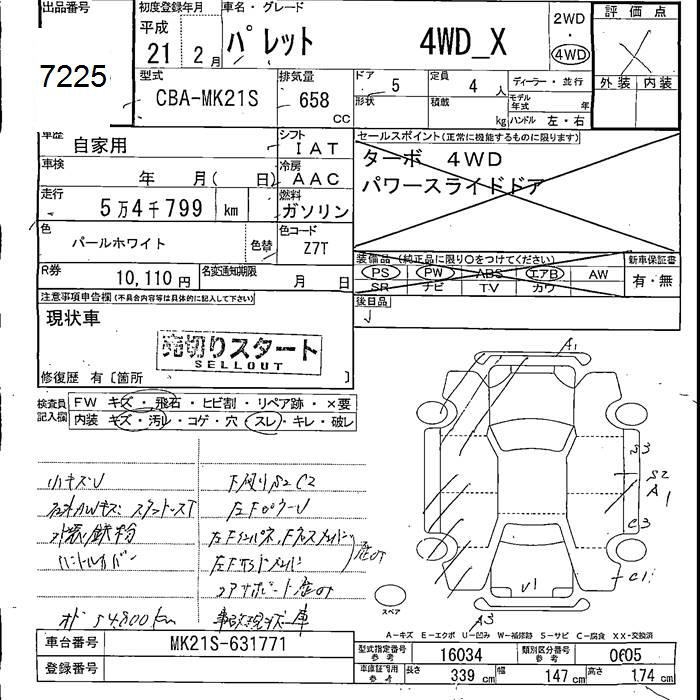 出品番号
7225
初度登録年月
平成
21 2 月
車名・グレード
パレット 4WD_X
2WD
・
4WD
評価点
外装 内装
型式
CBA-MK21S
排気量
658
CC
ドア 5
形状
定員 4 人
積載 kg
ディーラー・並行
モデル年式 年
ハンドル 左・右
車歴
自家用
シフト
IAT
車検
年 月( 日)
冷房
AAC
走行
5万4千799 km
燃料
ガソリン
色
パールホワイト
色替
色コード
Z7T
R券
10,110 円
名変通知期限
月 日
セールスポイント(正常に機能するものに限ります)
ターボ 4WD
パワースライドドア
装備品(純正品に限り○をつけてください)
PS PW ABS エアB AW
SR ナビ TV カワ
新車保証書
有・無
後日品
注意事項申告欄(不具合内容等は具体的に記入して下さい)
現状車
売切りスタート
SELLOUT
修復歴 有〔箇所 〕
検査員
記入欄
FW キズ・飛石・ヒビ割・リペア跡・×要
内装 キズ・汚レ・コゲ・穴 スレ・キレ・破レ
小キズU
下廻りS2C2
外装鉄粉
ハンドルカバー
54,800km
A1
S2
A1
C3
C1
U1
A3
スペア
A-キズ E-エクボ U-凹み W-補修跡 S-サビ C-腐食 XX-交換済
車台番号
MK21S-631771
登録番号
型式指定番号
参考
16034
類別区分番号
参考
0605
車庫証明用
参考
長さ 339 cm 幅 147 cm 高さ 174 cm